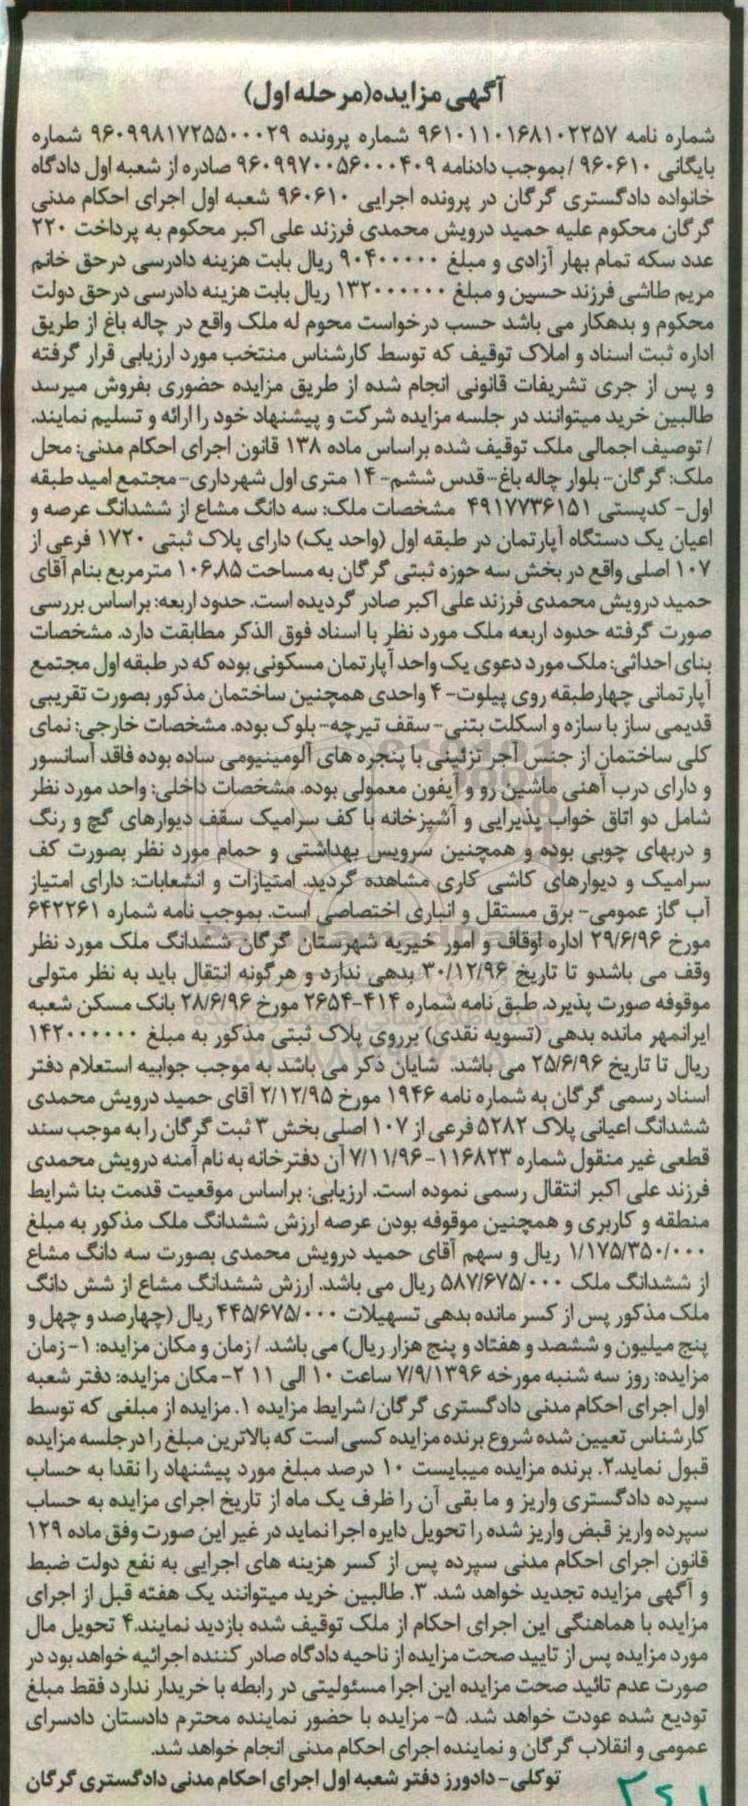 آگهی مزایده(مرحله اول)
شماره نامه ۹۶۱۰۱۱۰۱۶۸۱۰۲۲۵۷ شماره پرونده ۹۶۰۹۹۸۱۷۲۵۵۰۰۰۲۹ شماره
بایگانی ۹۶۰۶۱۰ /بموجب دادنامه ۹۶۰۹۹۷۰۰۵۶۰۰۰۴۰۹ صادره از شعبه اول دادگاه
خانواده دادگستری گرگان در پرونده اجرایی ۹۶۰۶۱۰ شعبه اول اجرای احکام مدنی
گرگان محکوم علیه حمید درویش محمدی فرزند علی اکبر محکوم به پرداخت ۲۲۰
عدد سکه تمام بهار آزادی و مبلغ ۹۰۴۰۰۰۰۰ ریال بابت هزینه دادرسی درحق خانم
مریم طاشی فرزند حسین و مبلغ ۱۳۲۰۰۰۰۰۰ ریال بابت هزینه دادرسی درحق دولت
محکوم و بدهکار می باشد حسب درخواست محوم له ملک واقع در چاله باغ از طریق
اداره ثبت اسناد و املاک توقیف که توسط کارشناس منتخب مورد ارزیابی قرار گرفته
و پس از جری تشریفات قانونی انجام شده از طریق مزایده حضوری بفروش میرسد
طالبین خرید میتوانند در جلسه مزایده شرکت و پیشنهاد خود را ارائه و تسلیم نمایند.
/ توصیف اجمالی ملک توقیف شده براساس ماده ۱۳۸ قانون اجرای احکام مدنی: محل
ملک: گرگان- بلوار چاله باغ- قدس ششم- ۱۴ متری اول شهرداری- مجتمع امید طبقه
اول- کدپستی ۴۹۱۷۷۳۶۱۵۱ مشخصات ملک: سه دانگ مشاع از ششدانگ عرصه و
اعیان یک دستگاه آپارتمان در طبقه اول (واحد یک) دارای پلاک ثبتی ۱۷۲۰ فرعی از
۱۰۷ اصلی واقع در بخش سه حوزه ثبتی گرگان به مساحت ۱۰۶,۸۵ مترمربع بنام آقای
حمید درویش محمدی فرزند علی اکبر صادر گردیده است. حدود اربعه: براساس بررسی
صورت گرفته حدود اربعه ملک مورد نظر با اسناد فوق الذکر مطابقت دارد. مشخصات
بنای احداثی: ملک مورد دعوی یک واحد آپارتمان مسکونی بوده که در طبقه اول مجتمع
آپارتمانی چهارطبقه روی پیلوت- ۴ واحدی همچنین ساختمان مذکور بصورت تقریبی
قدیمی ساز با سازه و اسکلت بتنی- سقف تیرچه- بلوک بوده. مشخصات خارجی: نمای
کلی ساختمان از جنس آجر تزئینی با پنجره های آلومینیومی ساده بوده فاقد آسانسور
و دارای درب آهنی ماشین رو و آیفون معمولی بوده. مشخصات داخلی: واحد مورد نظر
شامل دو اتاق خواب پذیرایی و آشپزخانه با کف سرامیک سقف دیوارهای گچ و رنگ
و دربهای چوبی بوده و همچنین سرویس بهداشتی و حمام مورد نظر بصورت کف
سرامیک و دیوارهای کاشی کاری مشاهده گردید. امتیازات و انشعابات: دارای امتیاز
آب گاز عمومی- برق مستقل و انباری اختصاصی است. بموجب نامه شماره ۶۴۲۲۶۱
مورخ ۲۹/۶/۹۶ اداره اوقاف و امور خیریه شهرستان گرگان ششدانگ ملک مورد نظر
وقف می باشدو تا تاریخ ۳۰/۱۲/۹۶ بدهی ندارد و هرگونه انتقال باید به نظر متولی
موقوفه صورت پذیرد. طبق نامه شماره ۴۱۴-۲۶۵۴ مورخ ۲۸/۶/۹۶ بانک مسکن شعبه
ایرانمهر مانده بدهی (تسویه نقدی) برروی پلاک ثبتی مذکور به مبلغ ۱۴۲۰۰۰۰۰۰
ریال تا تاریخ ۲۵/۶/۹۶ می باشد. شایان ذکر می باشد به موجب جوابیه استعلام دفتر
اسناد رسمی گرگان به شماره نامه ۱۹۴۶ مورخ ۲/۱۲/۹۵ آقای حمید درویش محمدی
ششدانگ اعیانی پلاک ۵۲۸۲ فرعی از ۱۰۷ اصلی بخش ۳ ثبت گرگان را به موجب سند
قطعی غیر منقول شماره ۱۱۶۸۲۳-۷/۱۱/۹۶ آن دفترخانه به نام آمنه درویش محمدی
فرزند علی اکبر انتقال رسمی نموده است. ارزیابی: براساس موقعیت قدمت بنا شرایط
منطقه و کاربری و همچنین موقوفه بودن عرصه ارزش ششدانگ ملک مذکور به مبلغ
۱/۱۷۵/۳۵۰/۰۰۰ ریال و سهم آقای حمید درویش محمدی بصورت سه دانگ مشاع
از ششدانگ ملک ۵۸۷/۶۷۵/۰۰۰ ریال می باشد. ارزش ششدانگ مشاع از شش دانگ
ملک مذکور پس از کسر مانده بدهی تسهیلات ۴۴۵/۶۷۵/۰۰۰ ریال (چهارصد و چهل و
پنج میلیون و ششصد و هفتاد و پنج هزار ریال) می باشد. / زمان و مکان مزایده: ۱- زمان
مزایده: روز سه شنبه مورخه ۷/۹/۱۳۹۶ ساعت ۱۰ الی ۱۱ ۲- مکان مزایده: دفتر شعبه
اول اجرای احکام مدنی دادگستری گرگان/ شرایط مزایده ۱. مزایده از مبلغی که توسط
کارشناس تعیین شده شروع برنده مزایده کسی است که بالاترین مبلغ را درجلسه مزایده
قبول نماید.۲. برنده مزایده میبایست ۱۰ درصد مبلغ مورد پیشنهاد را نقدا به حساب
سپرده دادگستری واریز و ما بقی آن را ظرف یک ماه از تاریخ اجرای مزایده به حساب
سپرده واریز قبض واریز شده را تحویل دایره اجرا نماید در غیر این صورت وفق ماده ۱۲۹
قانون اجرای احکام مدنی سپرده پس از کسر هزینه های اجرایی به نفع دولت ضبط
و آگهی مزایده تجدید خواهد شد. ۳. طالبین خرید میتوانند یک هفته قبل از اجرای
مزایده با هماهنگی این اجرای احکام از ملک توقیف شده بازدید نمایند.۴ تحویل مال
مورد مزایده پس از تایید صحت مزایده از ناحیه دادگاه صادر کننده اجرائیه خواهد بود در
صورت عدم تائید صحت مزایده این اجرا مسئولیتی در رابطه با خریدار ندارد فقط مبلغ
تودیع شده عودت خواهد شد. ۵- مزایده با حضور نماینده محترم دادستان دادسرای
عمومی و انقلاب گرگان و نماینده اجرای احکام مدنی انجام خواهد شد.
توکلی- دادورز دفتر شعبه اول اجرای احکام مدنی دادگستری گرگان